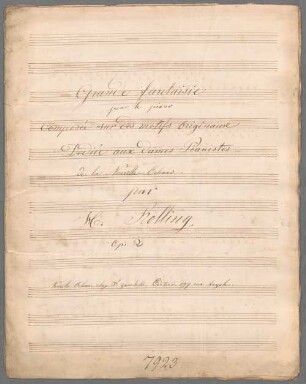 Grande fantaisie
pour le piano
Composée sur des motifs originaux
Dédiée aux Dames Pianistes
de la Nouvelle Orléans
par
H. Rolling
Op. 2
Nouvelle Orléans, chez Editeur rue Royale
7923